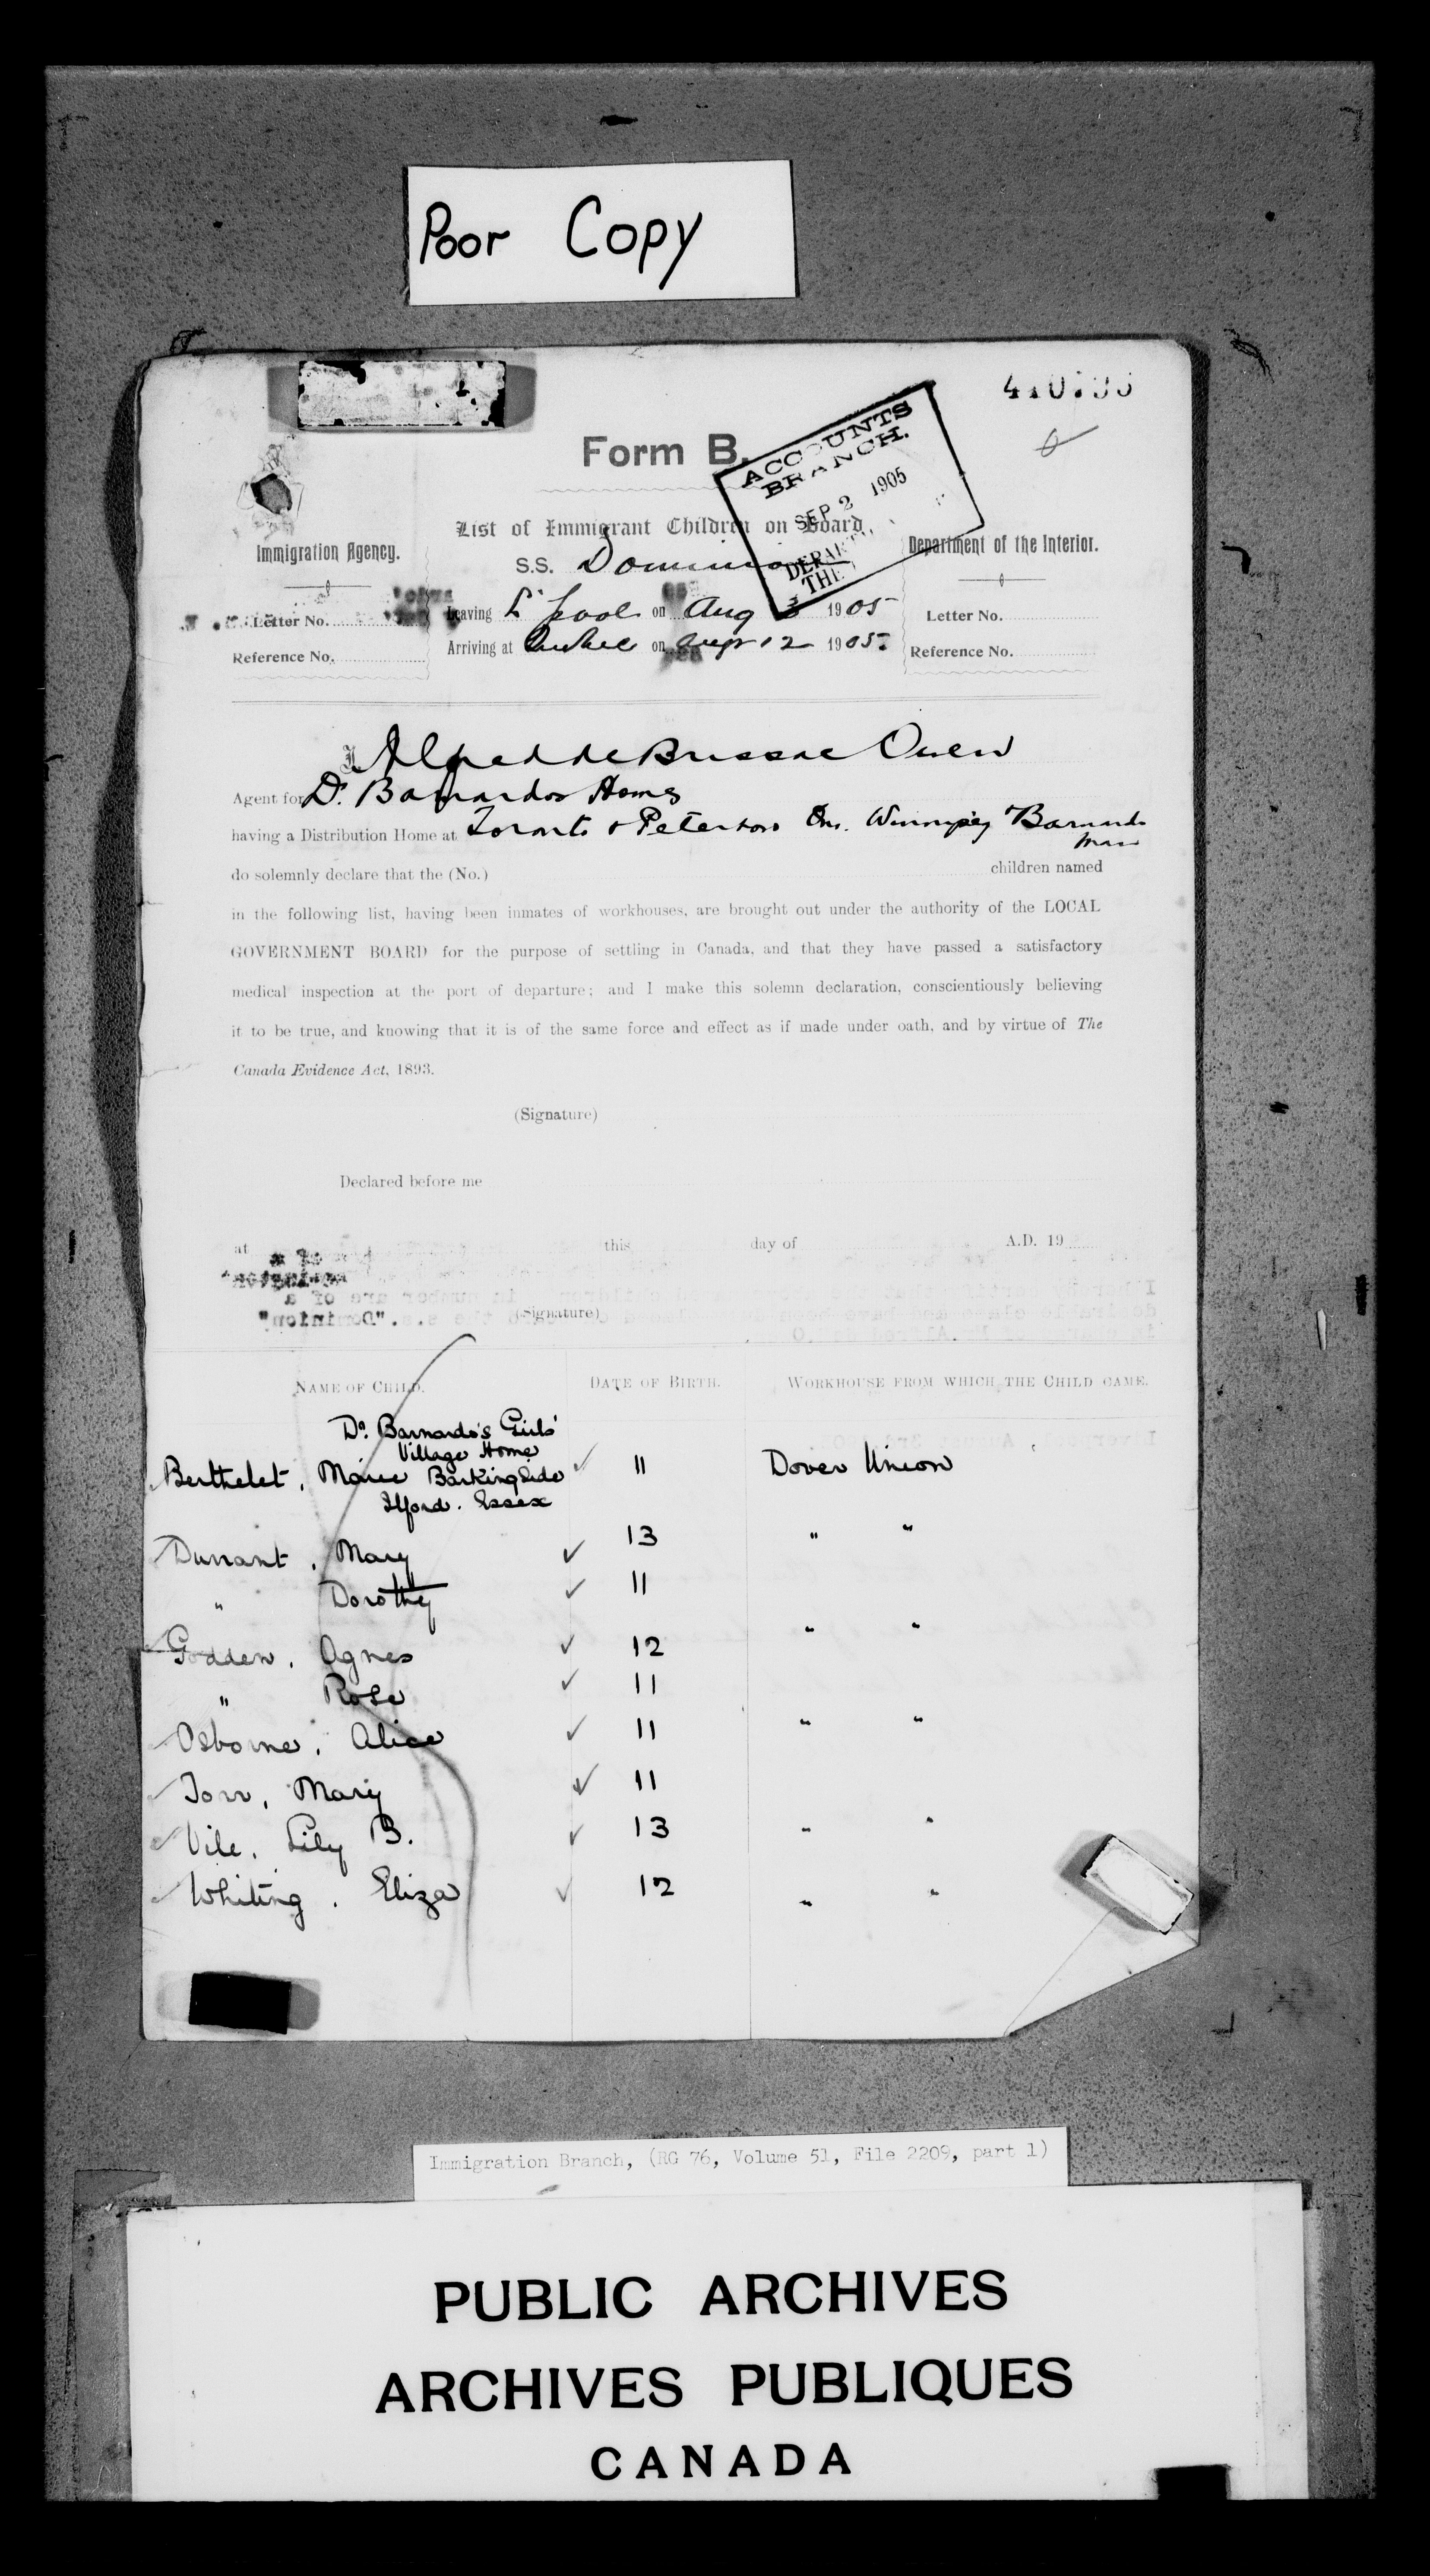 Poor Copy
Form B.
ACCOUNTS
BRANCH.
SEP 2 1905
THE
List of Immigrant Children on Board,
Immigration Agency.
Department of the Interior.
S.S. Dominion
Leaving L'pool on Aug 3 1905
Letter No.
Letter No.
Arriving at Quebec on Augt 12 1905.
Reference No.
Reference No.
I, Alfred de Brissac Owen
Agent for Dr. Barnardos Homes
having a Distribution Home at Toronto & Peterboro Ont. Winnipeg Barnardo
Man
do solemnly declare that the (No.) children named
in the following list, having been inmates of workhouses, are brought out under the authority of the LOCAL
GOVERNMENT BOARD for the purpose of settling in Canada, and that they have passed a satisfactory
medical inspection at the port of departure; and I make this solemn declaration, conscientiously believing
it to be true, and knowing that it is of the same force and effect as if made under oath, and by virtue of The
Canada Evidence Act, 1893.
(Signature)
Declared before me
at this day of A.D. 19
(Signature)
NAME OF CHILD. DATE OF BIRTH. WORKHOUSE FROM WHICH THE CHILD CAME.
Dr. Barnardo's Girls'
Village Home
Berthelet, Marie Barkingside ✓ 11 Dover Union
Ilford. Essex
Durrant, Mary ✓ 13 " "
" Dorothy ✓ 11
Godden, Agnes ✓ 12 " "
" Rose ✓ 11
Osborne, Alice ✓ 11 " "
Torr, Mary ✓ 11
Vile, Lily B. ✓ 13 " "
Whiting, Eliza ✓ 12 " "
Immigration Branch, (RG 76, Volume 51, File 2209, part 1)
PUBLIC ARCHIVES
ARCHIVES PUBLIQUES
CANADA